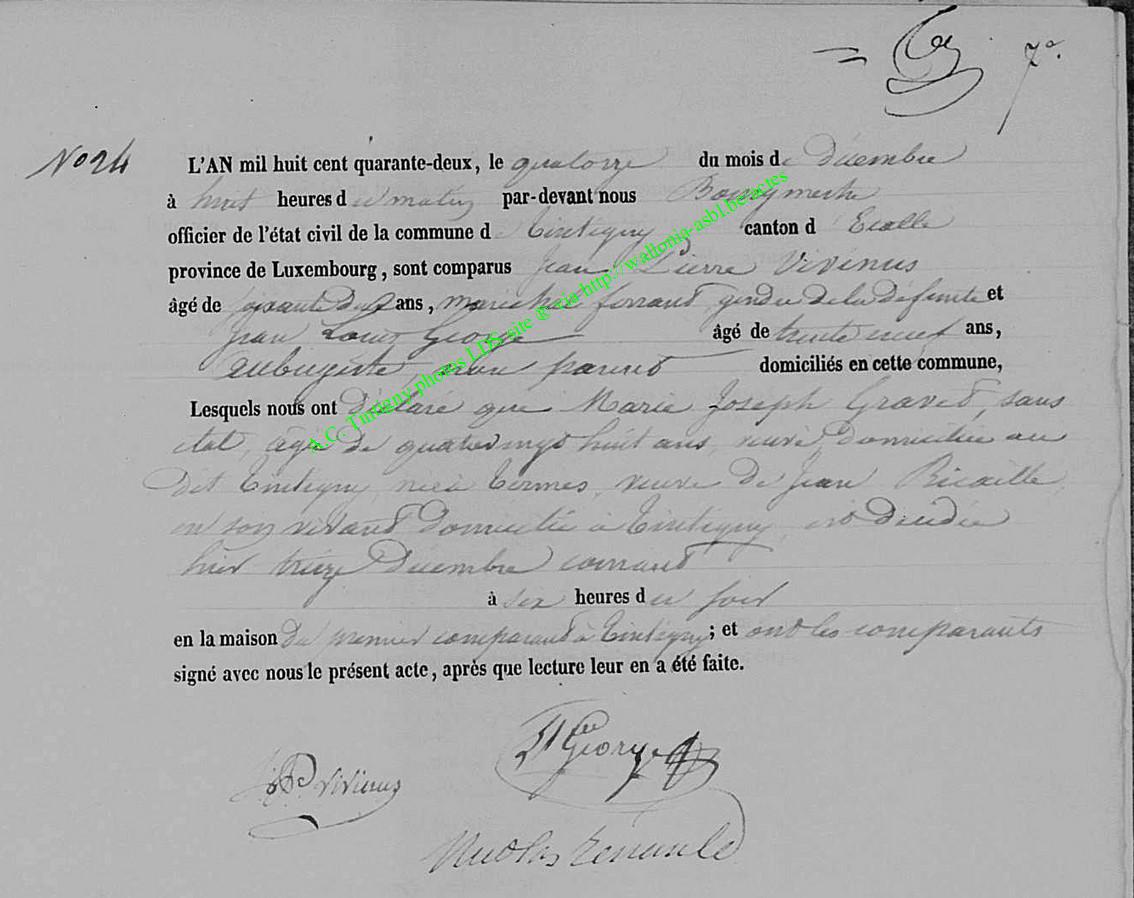 7e.
No 24
L'AN mil huit cent quarante-deux, le quatorze du mois de décembre
à huit heures du matin par-devant nous Bourgmestre
officier de l'état civil de la commune de Tintigny canton d' Etalle
province de Luxembourg, sont comparus Jean Pierre Vivinus
âgé de ans, maréchal ferrant, gendre de la défunte et
Jean Louis George âgé de trente neuf ans,
aubergiste non parent domiciliés en cette commune,
Lesquels nous ont déclaré que Marie Joseph Gravet, sans
état, âgée de quatrevingt huit ans, veuve, domiciliée au
dit Tintigny, née à Termes, veuve de Jean
en son vivant domicilié à Tintigny, est décédée
hier treize décembre courant
à six heures du soir
en la maison du premier comparant à Tintigny; et ont les comparants
signé avec nous le présent acte, après que lecture leur en a été faite.
George
JP Vivinus
Nicolas
A.C. Tintigny photos LDS site @ via http://wallonia-asbl.be/actes